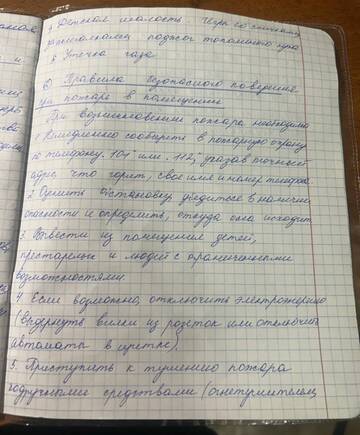 4 Детская шалость. Игры со спичками,
поджог тополиного пуха
5 Утечка газа
6) Правила безопасного поведения
при пожаре в помещении
При возникновении пожара необходимо
1 Немедленно сообщить в пожарную охрану
по телефону "101" или "112", указав точный
адрес, что горит, свое имя и номер телефона.
2 Оценить обстановку, убедиться в наличии
опасности и определить, откуда она исходит
3. Вывести из помещения детей,
престарелых и людей с ограниченными
возможностями.
4. Если возможно, отключить электроэнергию
(выдернуть вилки из розеток или отключить
автоматы в щитке).
5. Приступить к тушению пожара
подручными средствами (огнетушителем,